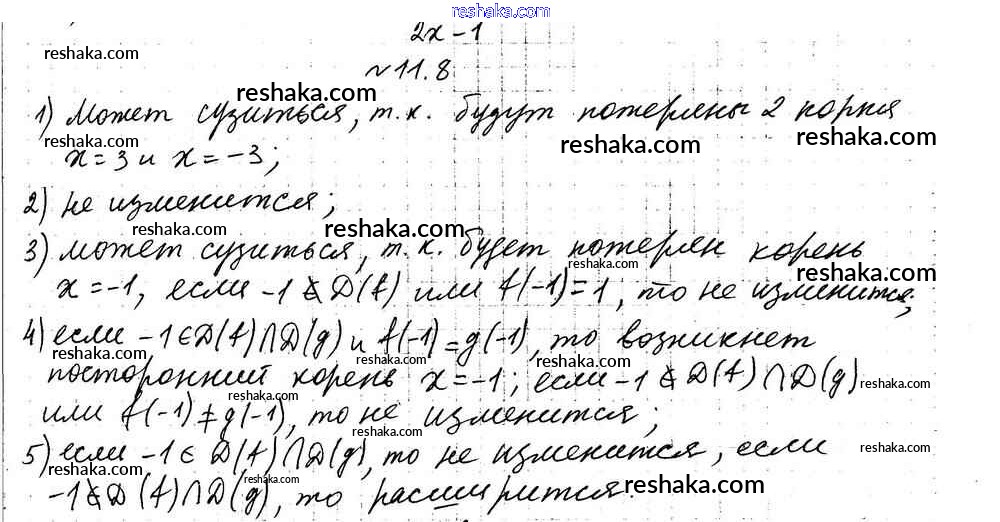 www.reshaka.com
2x-1
reshaka.com
№11.8
reshaka.com
1) Может сузиться, т.к. будут потеряны 2 корня
reshaka.com reshaka.com
x=3 и x=-3;
reshaka.com
2) не изменится;
reshaka.com reshaka.com
3) может сузиться, т.к. будет потерян корень
reshaka.com reshaka.com
x=-1, если -1 ∉ D(f) или f(-1)=1, то не изменится;
4) если -1 ∈ D(f)∩D(g) и f(-1)=g(-1), то возникнет
reshaka.com reshaka.com
посторонний корень x=-1; если -1 ∉ D(f)∩D(g)
reshaka.com reshaka.com
или f(-1)≠g(-1), то не изменится;
reshaka.com
5) если -1 ∈ D(f)∩D(g), то не изменится, если
reshaka.com reshaka.com reshaka.com
-1 ∉ D(f)∩D(g), то расширится.
reshaka.com